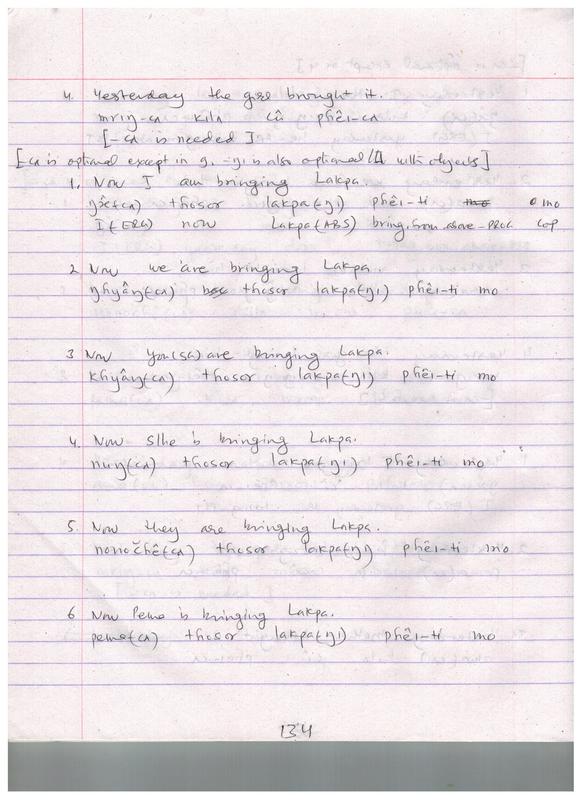 4. Yesterday the girl brought it.
mriŋ-cʌ kilʌ cû phêi-cʌ
[-cʌ is needed]
[-cʌ is optional except in 9, -ŋı is also optional with objects]
1. Now I am bringing Lakpa.
thosor lakpa(ŋı) phêı-ti mo
I(ERG) now Lakpa(ABS) bring.from.above-PROG COP
2 Now we are bringing Lakpa.
ŋhyâŋ(cʌ) thosor lakpa(ŋı) phêı-ti mo
3 Now you(SG) are bringing Lakpa.
khyâŋ(cʌ) thosor lakpa(ŋı) phêı-ti mo
4. Now S/he is bringing Lakpa.
nuŋ(cʌ) thosor lakpa(ŋı) phêı-ti mo
5. Now they are bringing Lakpa.
nonočhê(cʌ) thosor lakpa(ŋı) phêı-ti mo
6 Now Pema is bringing Lakpa.
pema(cʌ) thosor lakpa(ŋı) phêı-ti mo
134